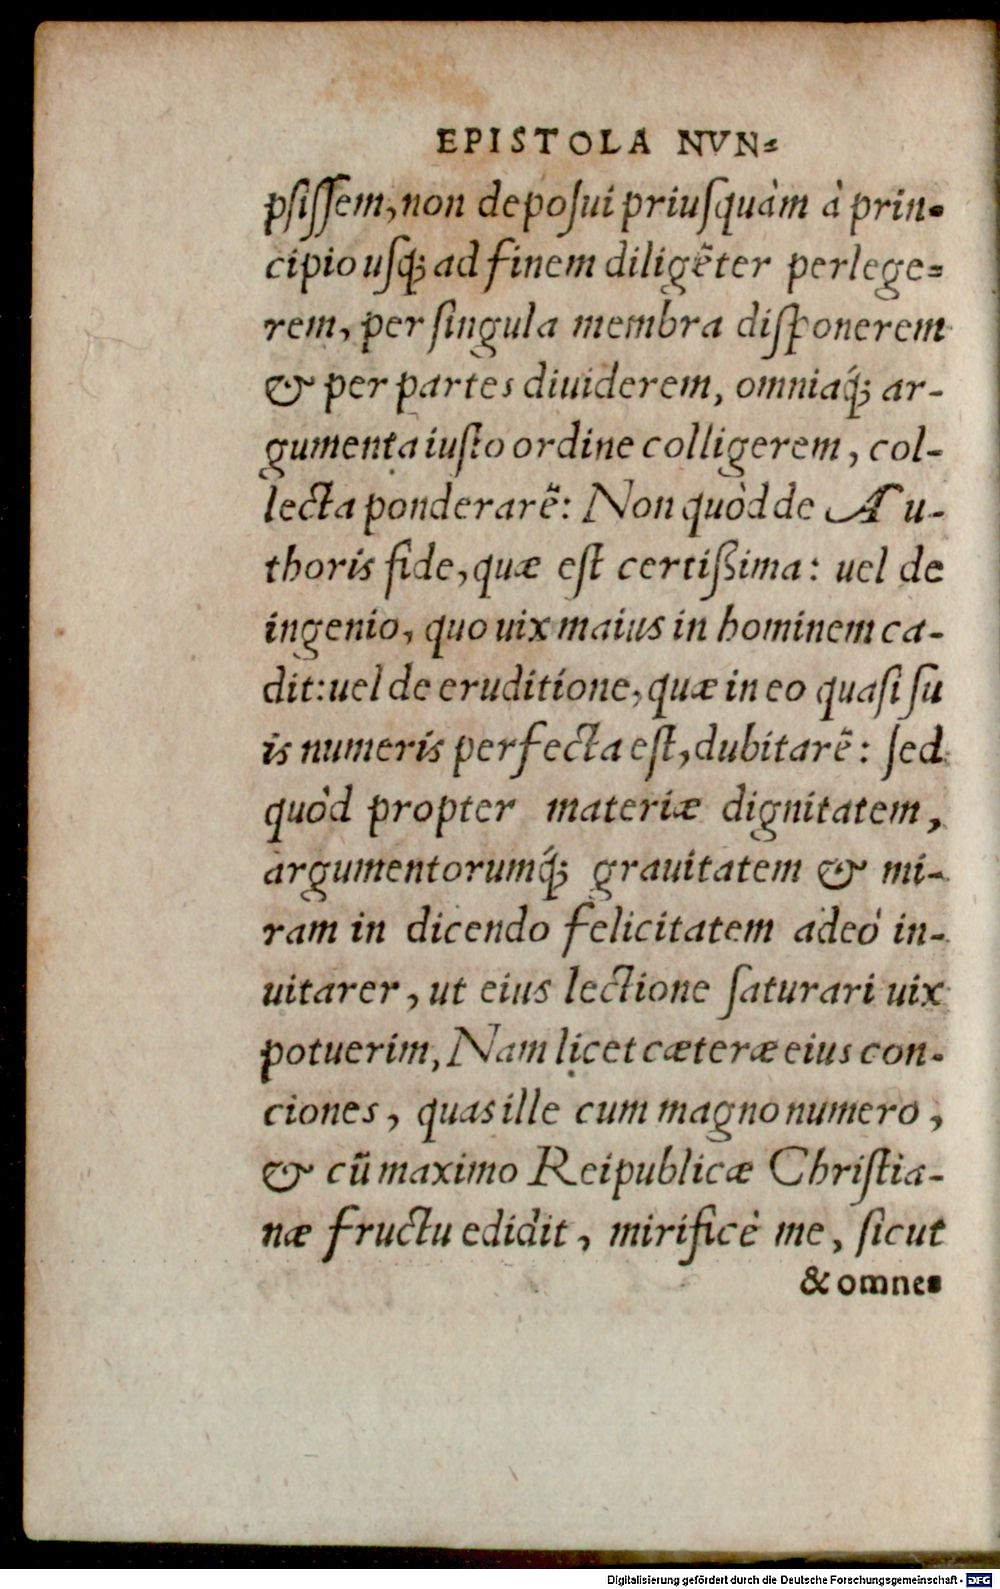 EPISTOLA NVN-
psissem, non deposui priusquàm à prin-
cipio usq́; ad finem diligẽter perlege-
rem, per singula membra disponerem
& per partes diuiderem, omniaq́; ar-
gumenta iusto ordine colligerem, col-
lecta ponderarẽ: Non quòd de Au-
thoris fide, quæ est certißima: uel de
ingenio, quo uix maius in hominem ca-
dit: uel de eruditione, quæ in eo quasi su
is numeris perfecta est, dubitarẽ: sed
quòd propter materiæ dignitatem,
argumentorumq́; grauitatem & mi-
ram in dicendo felicitatem adeò in-
uitarer, ut eius lectione saturari uix
potuerim, Nam licet cæteræ eius con-
ciones, quas ille cum magno numero,
& cũ maximo Reipublicæ Christia-
næ fructu edidit, mirificè me, sicut
& omnes
Digitalisierung gefördert durch die Deutsche Forschungsgemeinschaft - DFG